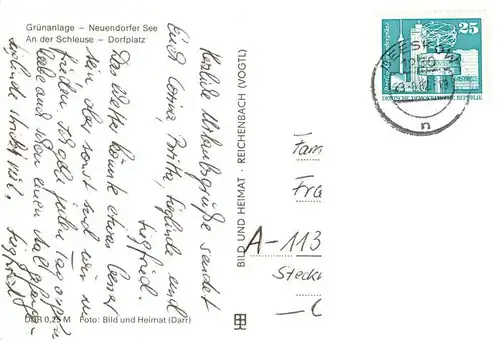 Grünanlage – Neuendorfer See
An der Schleuse – Dorfplatz
Herzliche Urlaubsgrüße sendet
Euch Corina, Britta, Sieglinde und
Siegfried.
Das Wetter könnte etwas besser
sein aber sonst sind wir zu
frieden. Ich gehe jeden Tag angeln
habe auch schon einen Aal gefangen.
Siegfried
DDR 0,25 M Foto: Bild und Heimat (Darr)
BILD UND HEIMAT · REICHENBACH (VOGTL)
BEESKOW
1230
n
25
DEUTSCHE DEMOKRATISCHE REPUBLIK
Fam
Fra
A-113
Steck